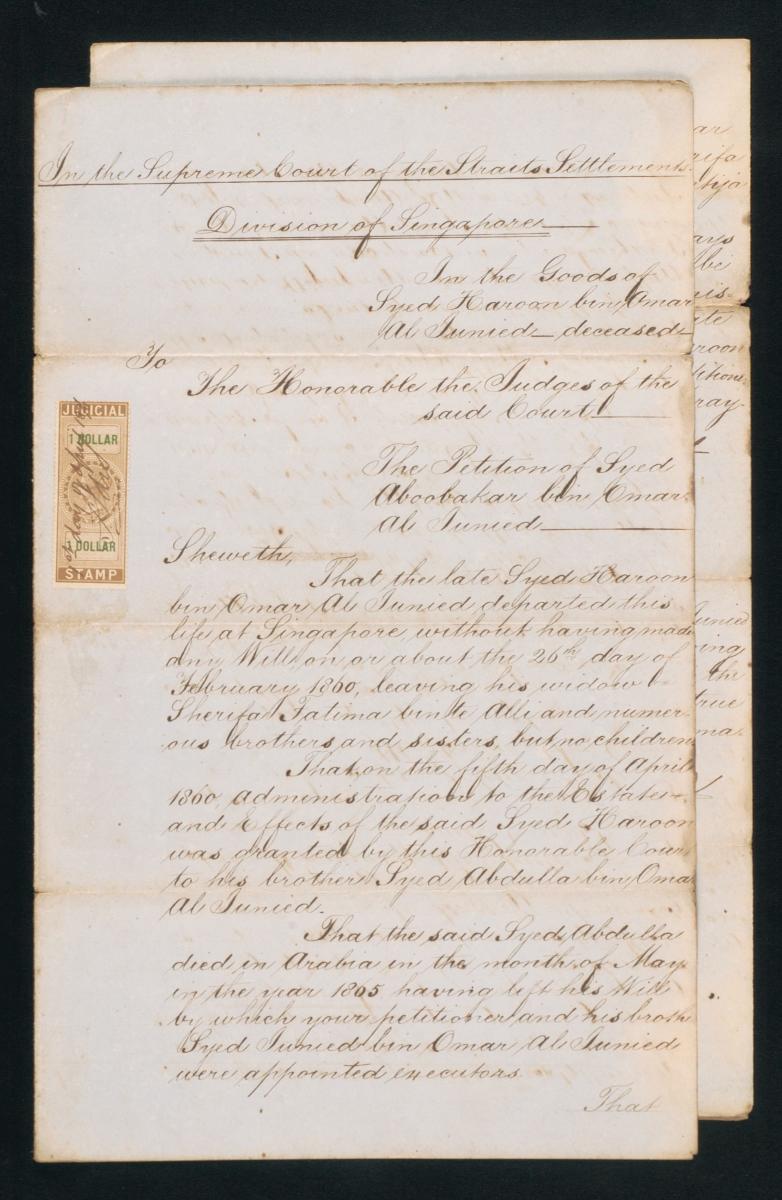 In the Supreme Court of the Straits Settlements.
Division of Singapore
In the Goods of
Syed Haroon bin Omar
Al Junied deceased
To
The Honorable the Judges of the
said Court
The Petition of Syed
Aboobakar bin Omar
Al Junied
Sheweth,
That the late Syed Haroon
bin Omar Al Junied departed this
life at Singapore without having made
any Will on or about the 26th day of
February 1860, leaving his widow
Sherifa Fatima binte Alli and numer
ous brothers and sisters, but no children
That on the fifth day of April
1860 administration to the Estate
and Effects of the said Syed Haroon
was granted by this Honorable Court
to his brother Syed Abdulla bin Omar
Al Junied.
That the said Syed Abdulla
died in Arabia in the month of May
in the year 1865 having left his Will
by which your petitioner and his broth
Syed Junied bin Omar Al Junied
were appointed executors
That
JUDICIAL
1 DOLLAR
1 DOLLAR
STAMP
ar
rifa
tija
ays
roon
ray
Junied
ing
the
true
ma